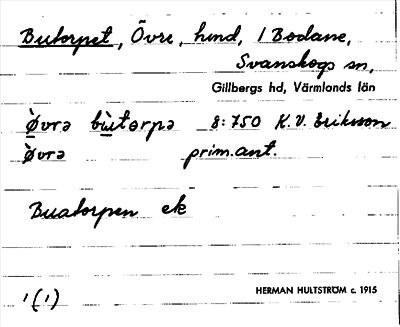 Butorpet, Övre, hmd, 1 Bodane,
Svanskogs sn,
Gillbergs hd, Värmlands län
ø̀vrə bùtorpə 8:750 K.V. Erikson
ø̀vrə prim.ant.
Buatorpen ek
1(1)
HERMAN HULTSTRÖM c. 1915